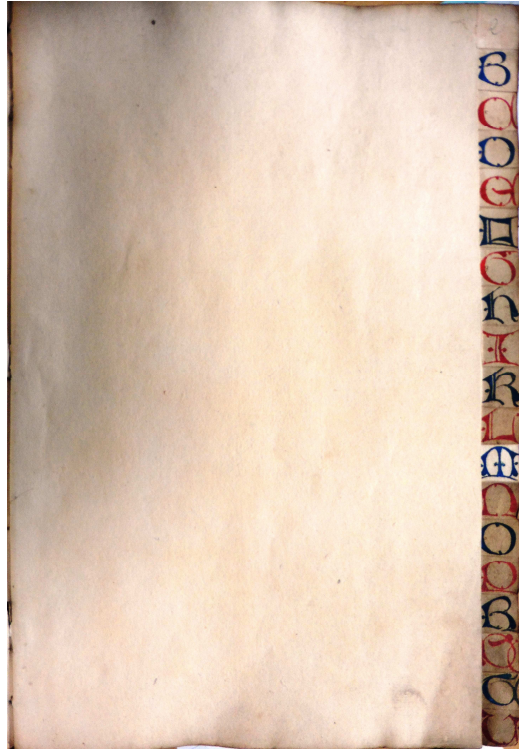 B
C
D
E
F
G
H
I
K
L
M
N
O
P
R
S
T
U